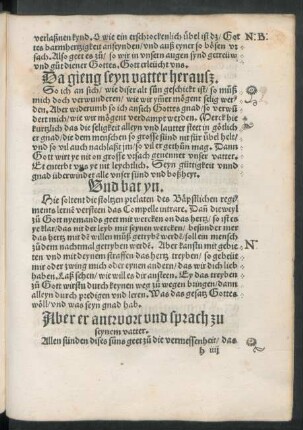 verlaſſnen kynd. O wie ein erſchrockenlich übel iſt dz/ Got
tes barmhertzigkeit anfeynden/ vnd auß eyner ſo böſen vr
ſach. Alſo geet es zu/ ſo wir in vnſern augen ſynd getreüw
vnd gůt diener Gottes. Gott erleücht vns.
N: B:
Da gieng ſeyn vatter herauſz.
So ich an ſich/ wie diſer alt ſün geſchickt iſt/ ſo můß
mich doch verwundern/ wie wir yn̄er mögent ſelig wer
den. Aber widerumb ſo ich anſich Gottes gnad/ ſo verwū
dert mich/ wie wir mögent verdampt werden. Merck hie
kurtzlich das die ſeligkeit alleyn vnd lautter ſteet in götlich
er gnad/ die dem menſchen ſo groſſe ſünd nit für übel helt/
vnd ſo vil auch nachlaſſt jm/ ſo vil er gethůn mag. Dann
Gott wirt ye nit on groſſe vrſach genennet vnſer vatter.
Er enterbt vns ye nit leychtlich. Seyn güttigkeit vnnd
gnad überwindet alle vnſer ſünd vnd boßheyt.
Vnd bat yn.
Hie ſoltent die ſtoltzen prelaten des Bäpſtlichen regi
ments lernē verſteen das Compelle intrare. Dañ die weyl
zů Gott nyemandts geet mit wercken on das hertz/ ſo iſt es
ye klar/ das nit der leyb mit ſeynen wercken/ beſunder mer
das hertz mit gůtem willen můß getrybē werdē/ ſoll ein menſch
zů dem nachtmal getryben werdē. Aber kanſtu mit gebie
ten vnd mit deynem ſtraffen das hertz treyben/ ſo gebeüt
mir oder zwing mich oder eynen andern/ das wir dich lieb
haben. Laß ſehen/ wie will es dir anſteen. Ey das treyben
zů Gott würſtu durch keynen weg zů wegen bringen/ dann
alleyn durch predigen vnd leren. Was das geſatz Gottes
wöll/ vnd was ſeyn gnad hab.
N:
Aber er antwort vnd ſprach zů
ſeynem vatter.
Allen ſünden diſes ſüns geet zů die vermeſſenheit/ das
h iiij